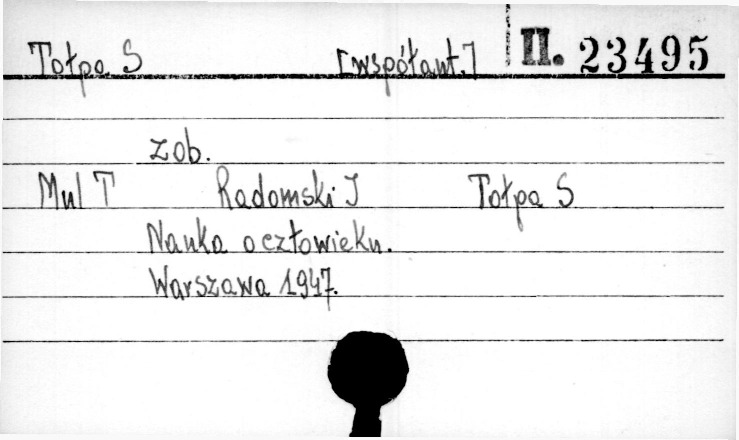 Tołpa S [współaut.] II. 23495
zob.
Mul T Radomski J Tołpa S
Nauka o człowieku.
Warszawa 1947.